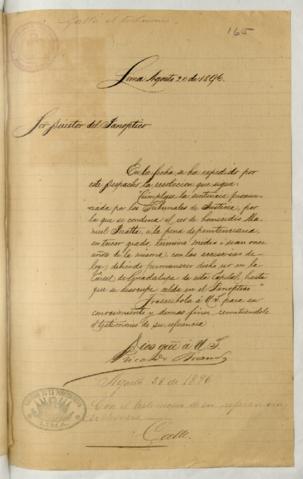 Falta el testimonio
165
Lima Agosto 20 de 1896.
Sor Director del Panóptico
En la fecha, se ha expedido por
este despacho la resolucion que sigue:
"Cúmplase la sentencia pronun-
ciada por los Tribunales de Justicia, por
la que se condena al reo de homicidio Ma-
nuel á la pena de penitenciaría
en tercer grado, término medio ó sean once
años de la misma, con las accesorias de
ley, debiendo permanecer dicho reo en la
Carcel de Guadalupe de esta Capital, hasta
que se desocupe celda en el Panóptico"
Trascríbola á U.S. para su
conocimiento y demas fines, remitiéndole
el testimonio de su referencia
Dios gûe á U.S.
Ricardo
Agosto 28 de 1896
Con el testimonio de su referencia
LIMA